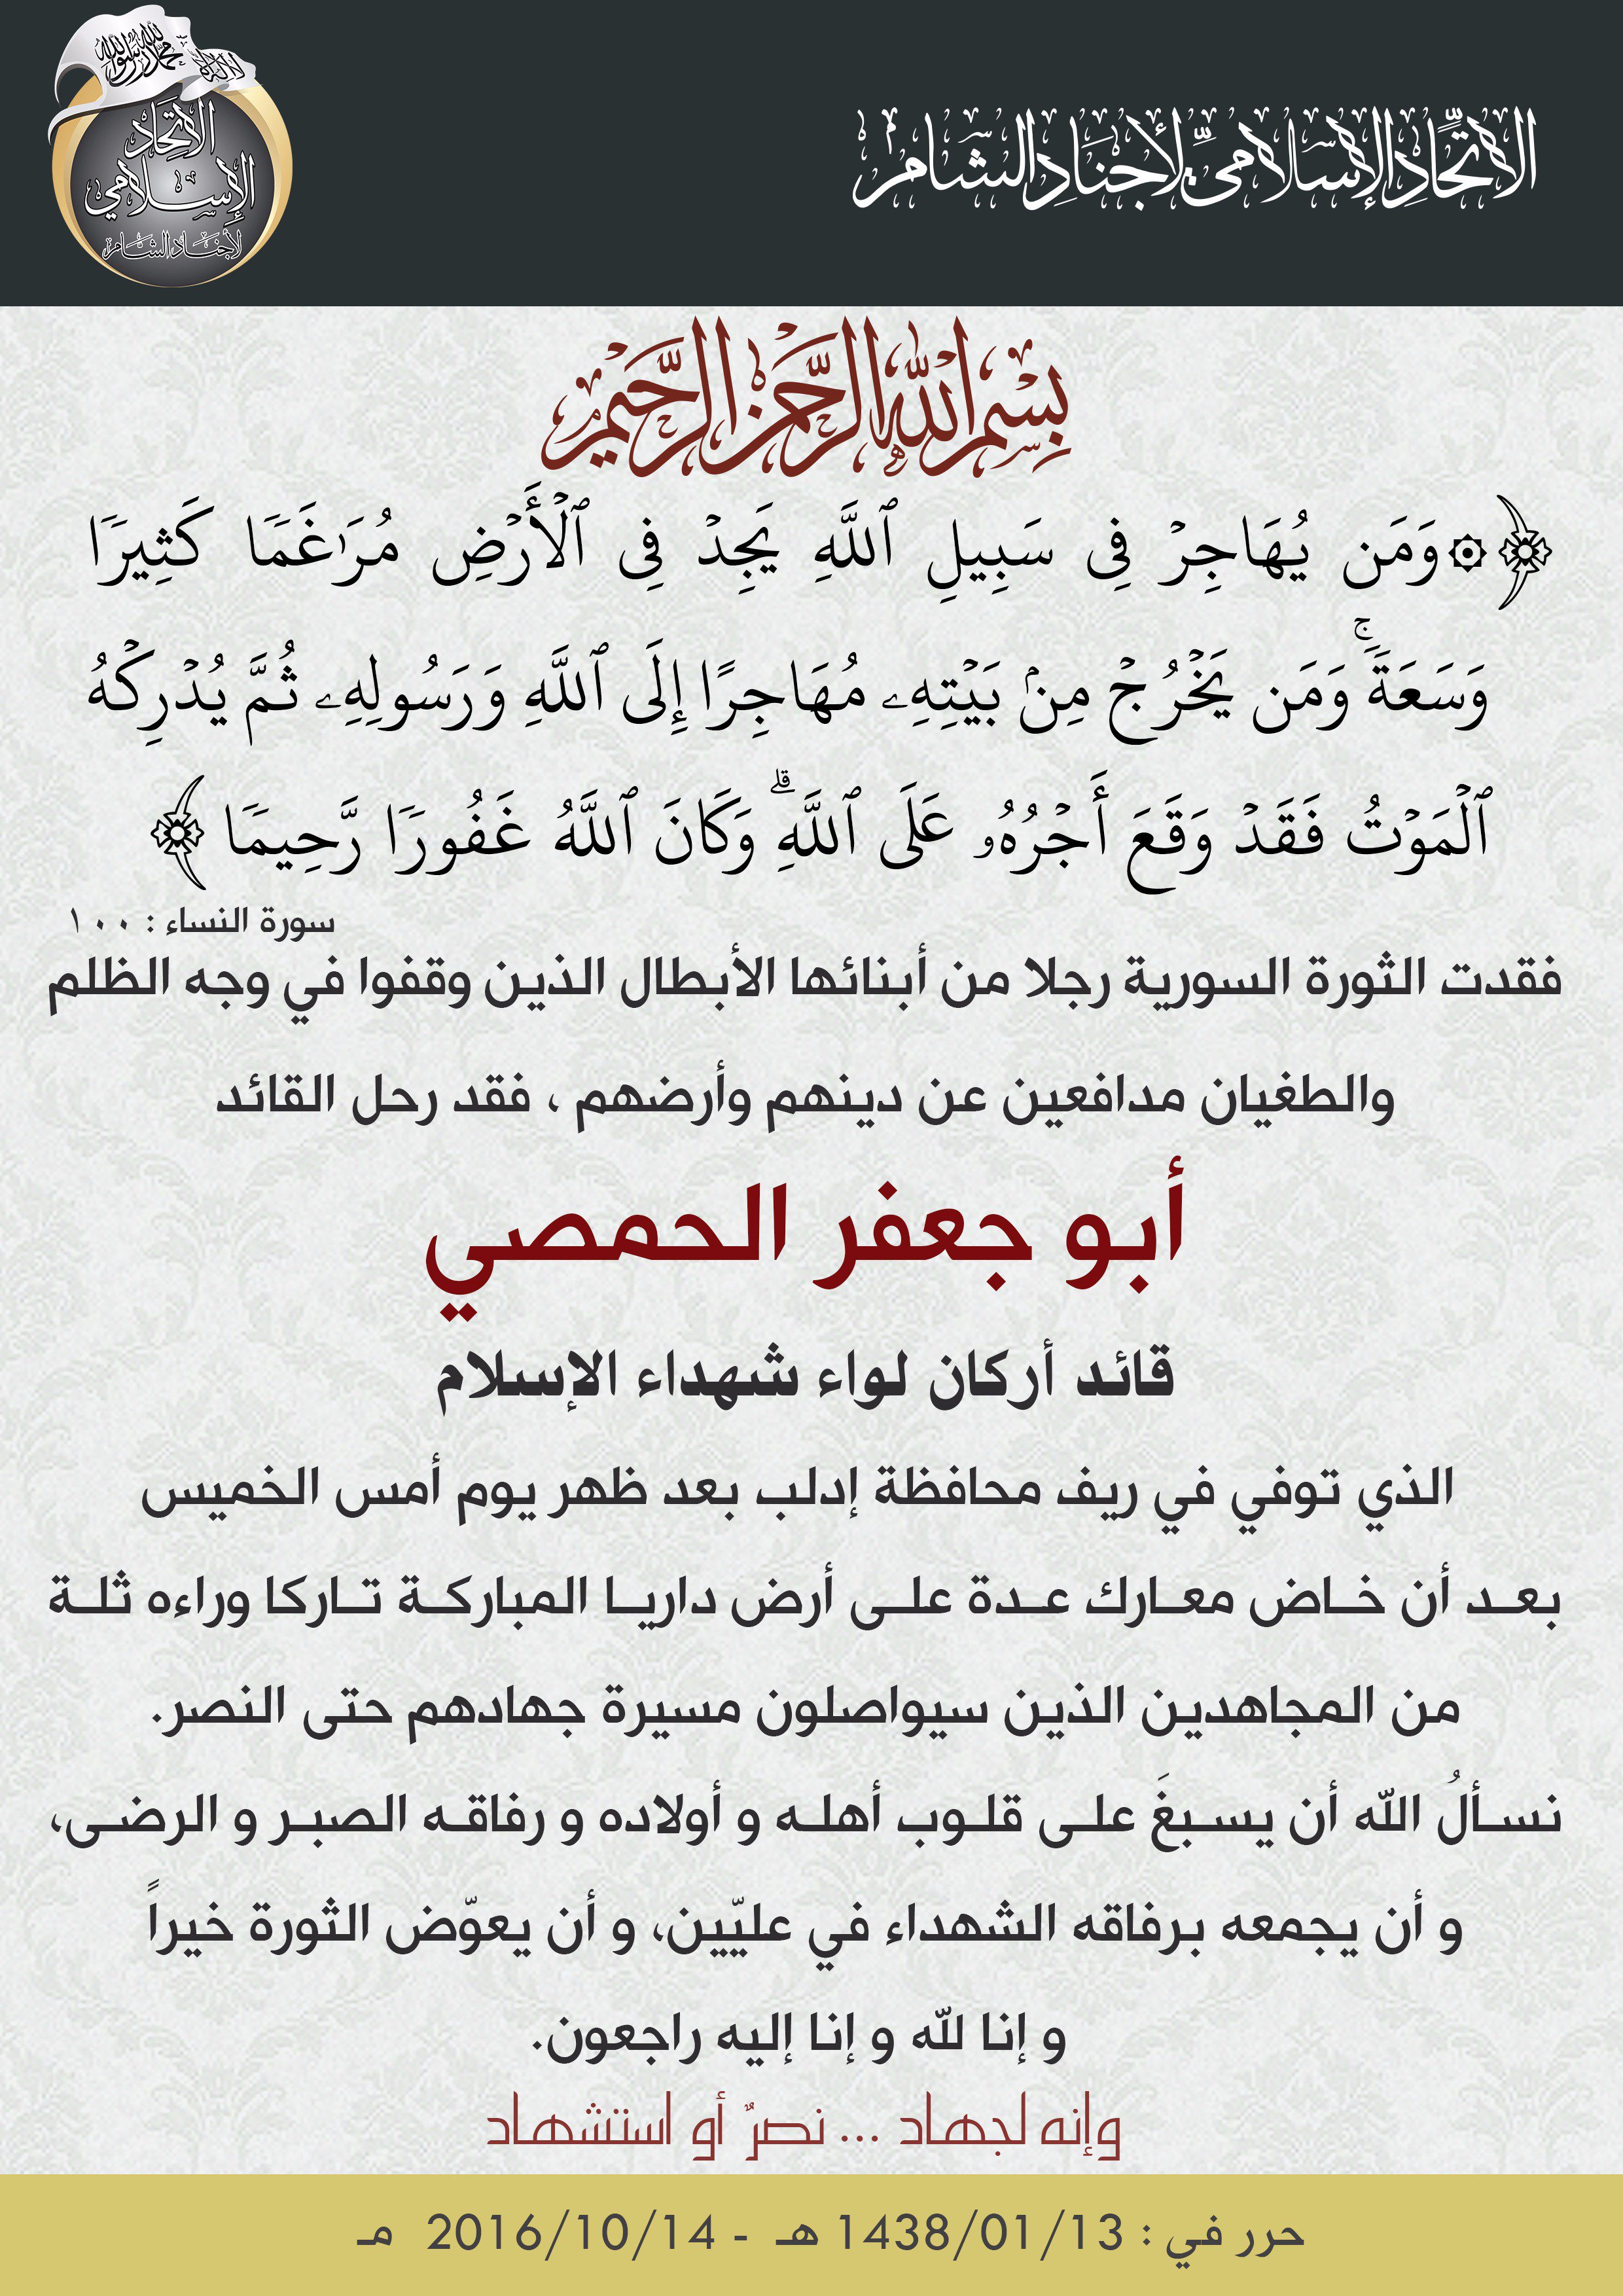 الاتحاد الإسلامي لأجناد الشام
لا إله إلا الله
محمد رسول الله
الاتحاد
الإسلامي
لأجناد الشام
بِسْمِ اللهِ الرَّحْمٰنِ الرَّحِيمِ
﴿۞ وَمَن يُهَاجِرْ فِى سَبِيلِ ٱللَّهِ يَجِدْ فِى ٱلْأَرْضِ مُرَٰغَمًا كَثِيرًا
وَسَعَةً ۚ وَمَن يَخْرُجْ مِنۢ بَيْتِهِۦ مُهَاجِرًا إِلَى ٱللَّهِ وَرَسُولِهِۦ ثُمَّ يُدْرِكْهُ
ٱلْمَوْتُ فَقَدْ وَقَعَ أَجْرُهُۥ عَلَى ٱللَّهِ ۗ وَكَانَ ٱللَّهُ غَفُورًا رَّحِيمًا ﴾
سورة النساء : ١٠٠
فقدت الثورة السورية رجلا من أبنائها الأبطال الذين وقفوا في وجه الظلم
والطغيان مدافعين عن دينهم وأرضهم ، فقد رحل القائد
أبو جعفر الحمصي
قائد أركان لواء شهداء الإسلام
الذي توفي في ريف محافظة إدلب بعد ظهر يوم أمس الخميس
بعـد أن خـاض معـارك عـدة علـى أرض داريـا المباركـة تـاركا وراءه ثلـة
من المجاهدين الذين سيواصلون مسيرة جهادهم حتى النصر.
نسـألُ الله أن يسـبغَ علـى قلـوب أهلـه و أولاده و رفاقـه الصبـر و الرضـى،
و أن يجمعه برفاقه الشهداء في عليّين، و أن يعوّض الثورة خيراً
و إنا لله و إنا إليه راجعون.
وإنه لجهاد ... نصرٌ أو استشهاد
حرر في : 1438/01/13 هـ - 2016/10/14 مـ